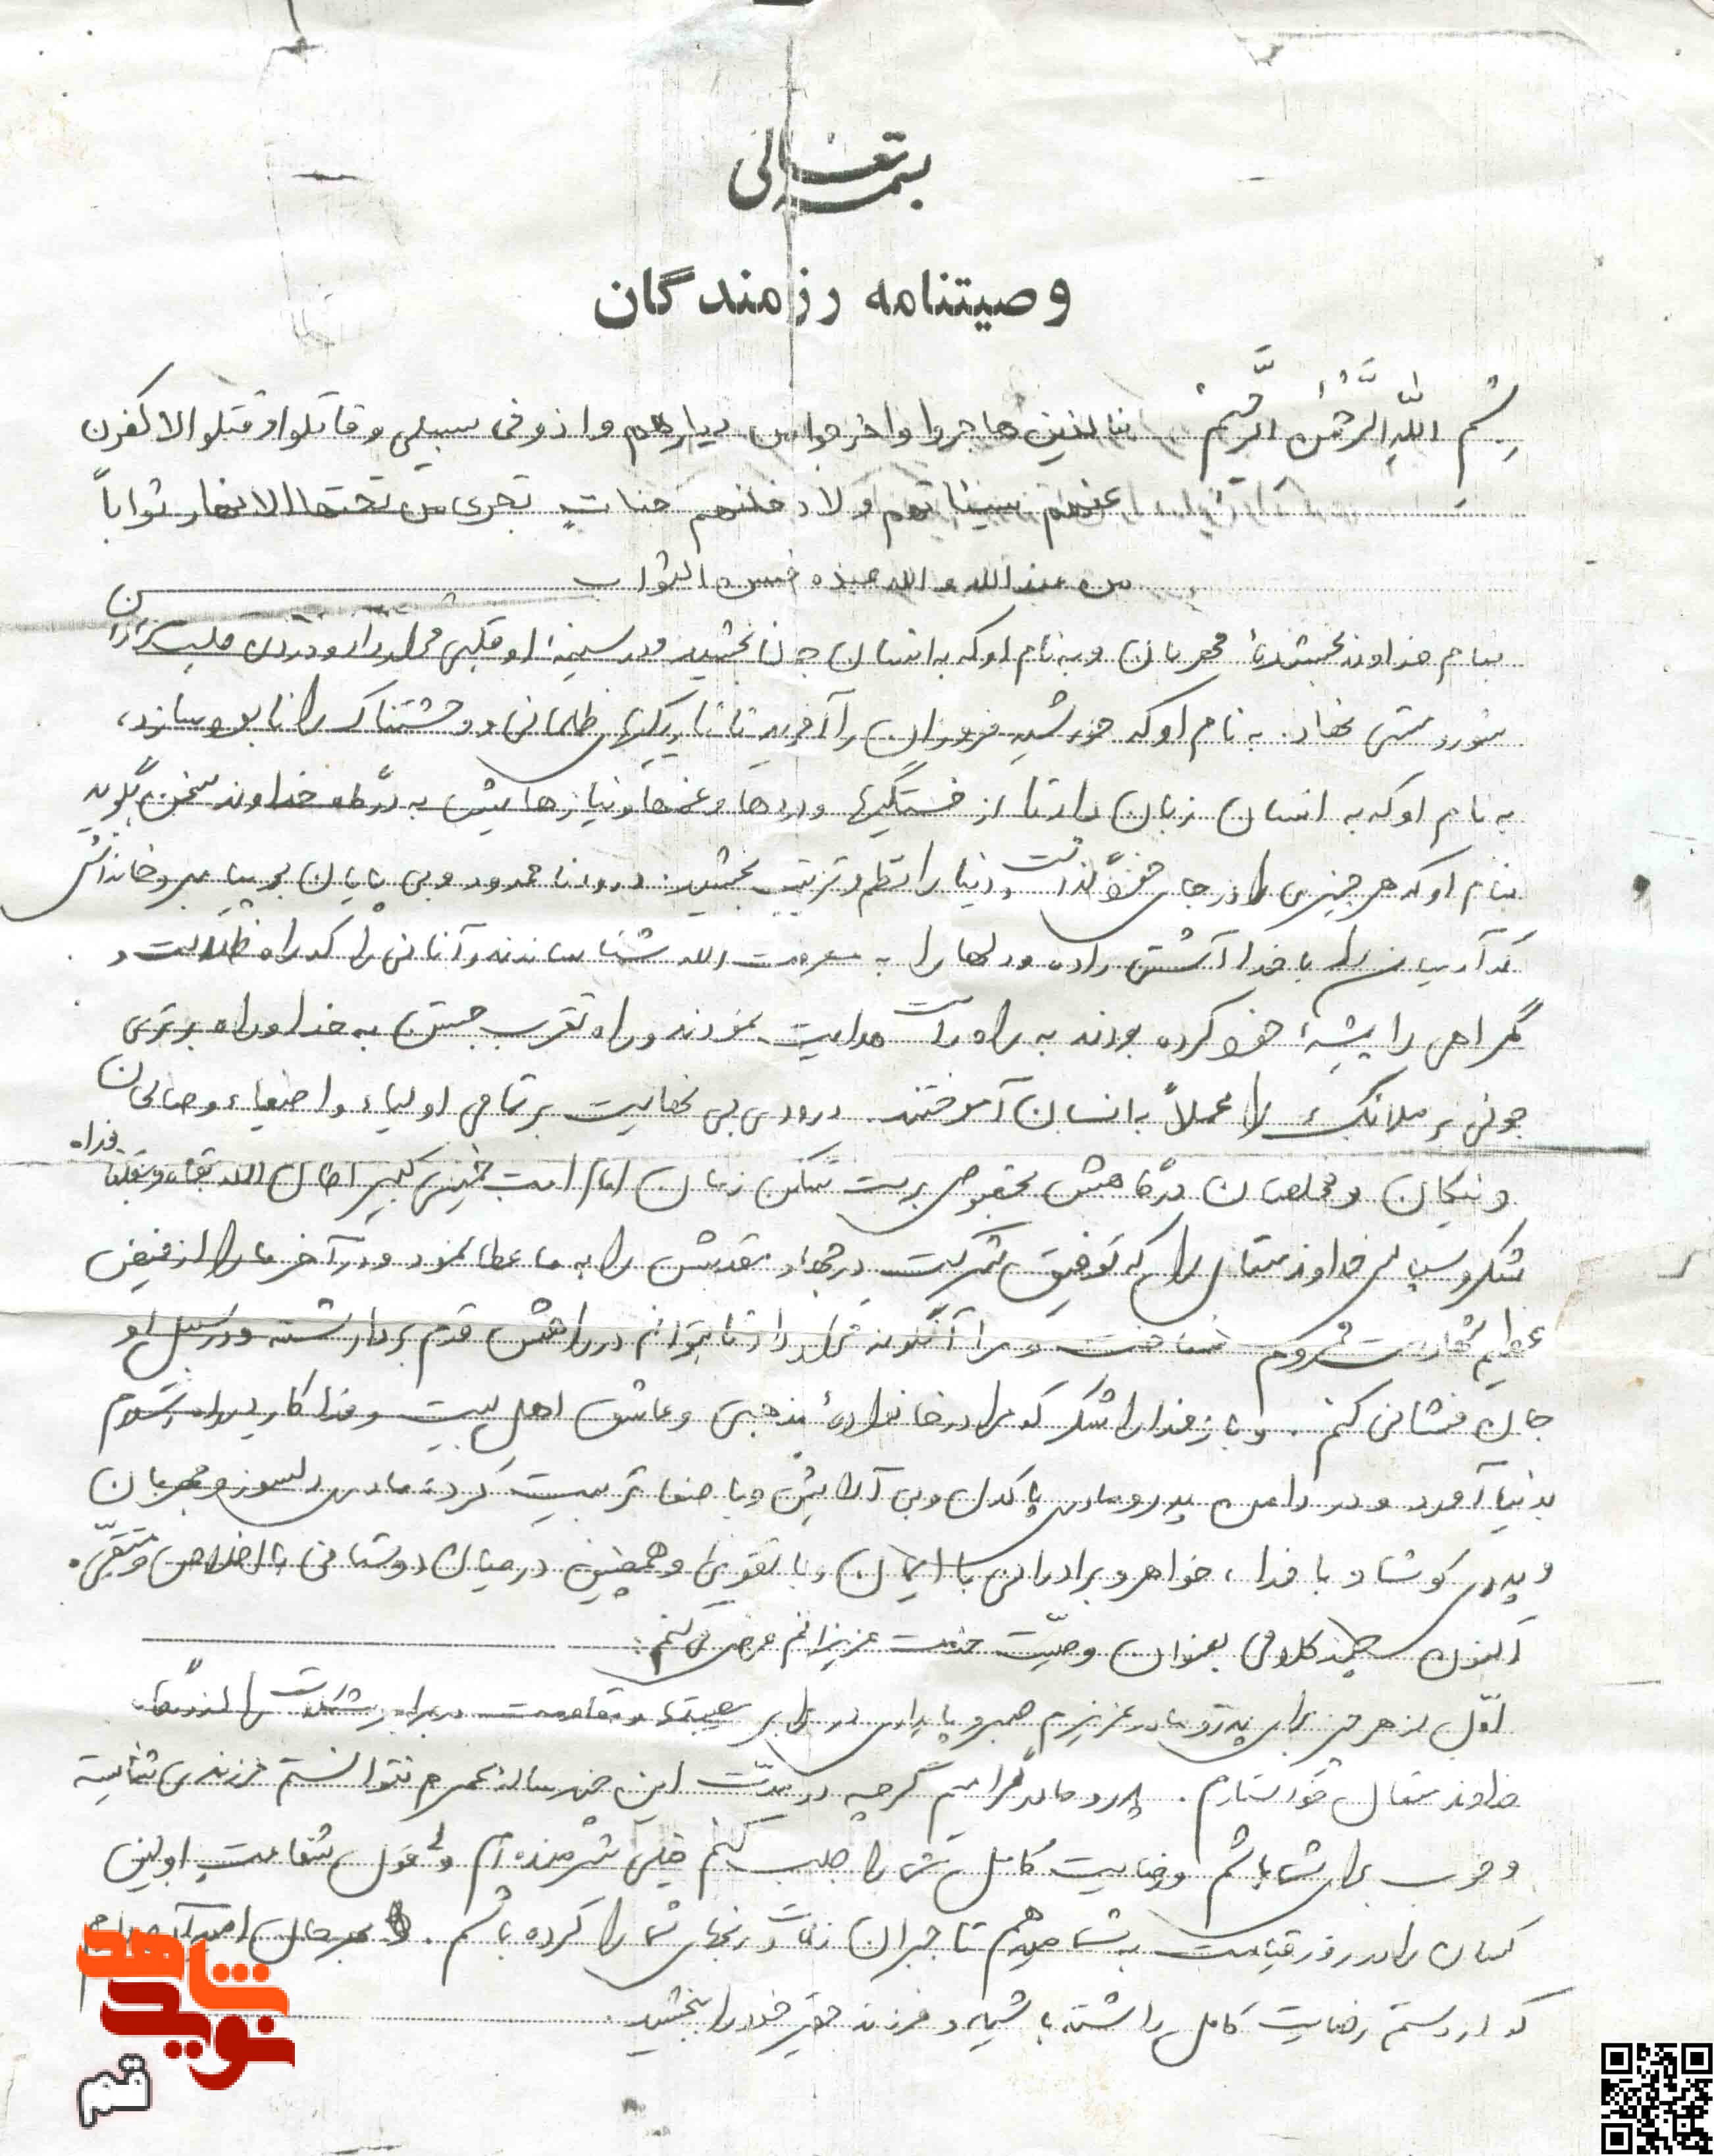 بسمه تعالی
وصیتنامه رزمندگان
بِسْمِ اللّٰهِ الرَّحْمٰنِ الرَّحیمْ فاالذین هاجروا واخرجوا من دیارهم واذو فی سبیلی وقاتلوا وقتلوا لاکفرن
عنهم سیئاتهم ولادخلنهم جناتٍ تجری من تحتها الانهار ثواباً
من عند الله و الله عنده حسن الثواب
بنام خداوند بخشندهٔ مهربان و به نام او که به انسان جان بخشید و در سینهٔ او قلبی قرار داد و درون قلب
شور و مستی نهاد. به نام او که خورشید فروزان را آفرید تا تاریکیهای ظلمانی و وحشتناک را نابود سازد،
به نام او که به انسان زبان داد تا از خستگیها و دردها و غمها و نیازهایش به درگاه خداوند سخن بگوید
بنام او که هر چیزی را در جای خود گذاشت و دنیا را نظم و ترتیب بخشید. درود نامحدود و بی پایان بر پیامبر و خاندانش
که آدمیان را با خدا آشتی داده و دلها را به معرفت الله شناساندند و آنانی را که راه ظلالت و
گمراهی را پیشهٔ خود کرده بودند به راه راست هدایت نمودند و راه تقرب جستن به خدا و راه برتری
جوئی بر ملائک را عملاً به انسان آموختند. درودی بی نهایت بر تمامی اولیاء و اصفیاء و صالحان
و نیکان و مخلصان درگاهش بخصوص بت شکن زمان امام امت خمینی کبیر اطال الله بقاه
شکر و سپاس خداوند متعال را که توفیق شرکت در جهاد مقدسش را به ما عطا نمود و در آخر ما را از فیض
عظیم شهادت محروم نساخت و مرا آنگونه قرار داد تا بتوانم در راهش قدم برداشته و در سبیل او
جان فشانی کنم. و باز خدا را شکر که مرا در خانواده‌ٔ مذهبی و عاشق اهل بیت و فداکار در راه اسلام
بدنیا آورد و در دامن پدر و مادری پاکدل و بی آلایش و با صفا تربیت کرد، مادری دلسوز و مهربان
و پدری کوشا و با خدا، خواهر و برادرانی با ایمان و با تقوی و همچنین در میان دوستانی با اخلاص و متقی.
اکنون چند کلامی بعنوان وصیّت خدمت عزیزانم عرض می کنم:
اوّل از هر چیز برای پدر و مادر عزیزم صبر و پایداری در برابر مصیبتها و مقاومت در برابر مشکلات را از درگاه
خداوند متعال خواستارم. پدر و مادر گرامیم گرچه در مدّت این چند ساله عمرم نتوانستم فرزندی شایسته
و خوب برای شما باشم و رضایت کامل شما را جلب کنم خیلی شرمنده ام ولی قول شفاعت اولین
کسان را در روز قیامت به شما میدهم تا جبران زحمات و رنجهای شما را کرده باشم. بهر حال امیدوارم
که از دستم رضایت کامل داشته باشید و فرزند حقیر خود را ببخشید.
نوید شاهد
قم